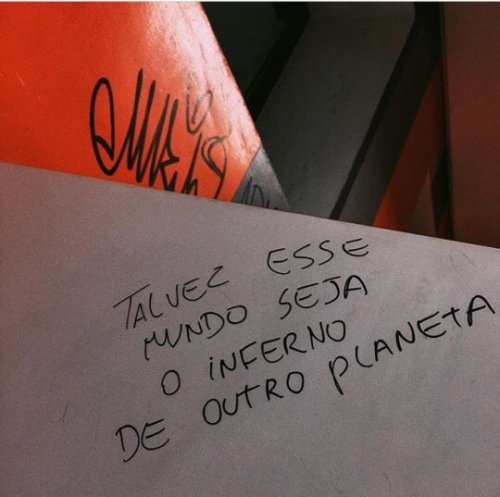 TALVEZ ESSE
MUNDO SEJA
O INFERNO
DE OUTRO PLANETA